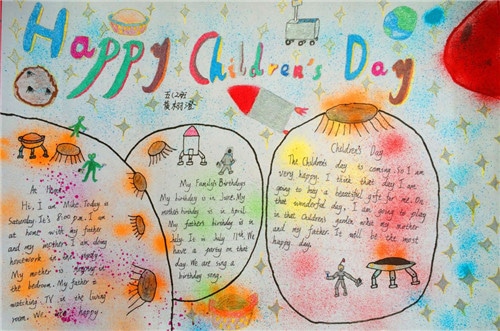 Happy Children's Day
五(2)班
At Home
Hi, I am Mike. Today is
Saturday. It's 8:00 p.m. I am
at home with my father
and my mother. I am doing
homework in the study.
My mother is singing in
the bedroom. My father is
watching TV in the living
room. We are happy
My Family's Birthdays
My birthday is in June. My
mother birthday is in April.
My father's birthday is in
July. It is July 11th. We
have a party on that
day. We are sing a
birthday song.
Children's Day
The Children's day is coming. So I am
very happy. I think that day I am
going to buy a beautiful gift for me. On
that wonderful day, I am going to play
in that Children's garden with my mother
and my father. It will be the most
happy day.